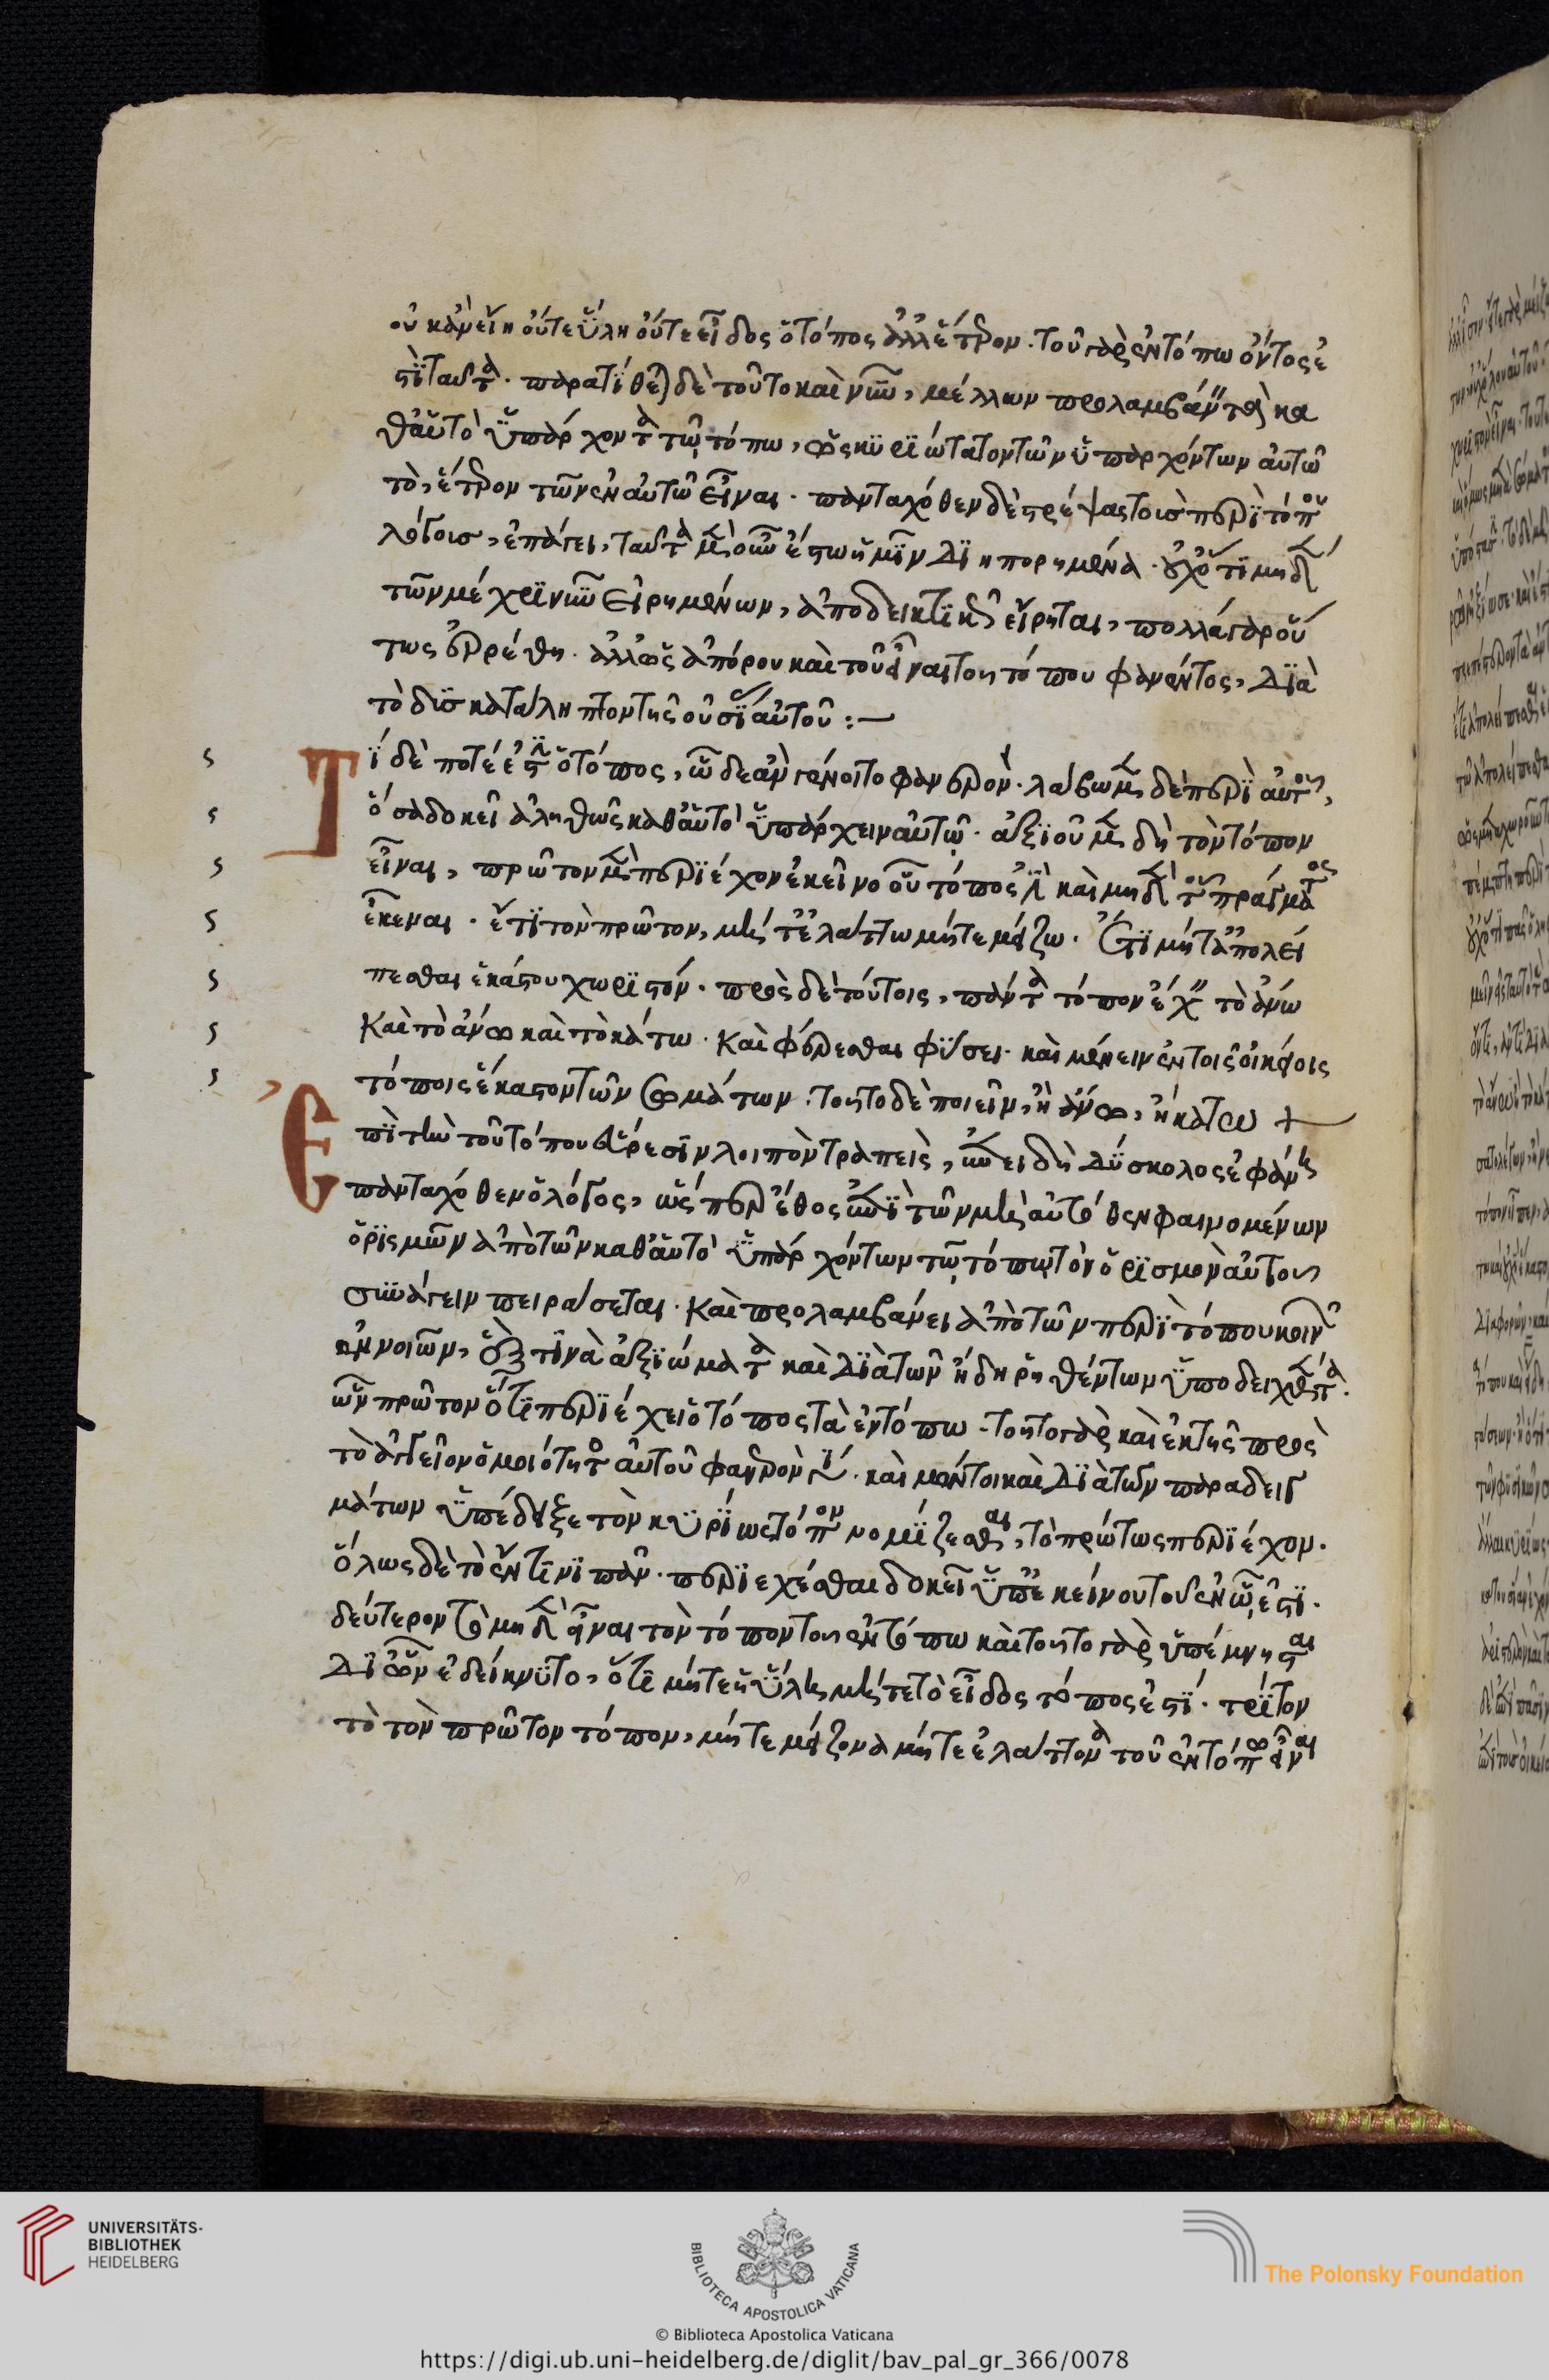 οὐκ ἂν εἴη οὔτε ὕλη οὔτε εἶδος ὁ τόπος ἀλλ' ἕτερον. τοῦ γὰρ ἐν τόπω ὄντος ἐ
στὶ ταῦτα. παρατίθεται δὲ τοῦτο καὶ νῦν, μέλλων προλαμβάνειν τὰ κα
θ' αὑτὸ ὑπάρχοντα τῷ τόπω, ὡς κυριώτατον τῶν ὑπαρχόντων αὐτῶ
τὸ, ἕτερον τῶν ἐν αὐτῶ εἶναι. πανταχόθεν δὲ στρέψας τοῖς περὶ τόπου
λόγοις, ἐπάγει, ταῦτα μὲν οὖν ἔστω ἡμῖν διηπορημένα. οὐχ ὅτι μηδὲν
τῶν μέχρι νῦν εἰρημένων, ἀποδεικτικῶς εἴρηται, πολλὰ γὰρ οὕ
τως ἐρρέθη. ἀλλ' ὡς ἀπόρου καὶ τοῦ εἶναι τοῦ τόπου φανέντος, διὰ
τὸ δυσκατάληπτον τῆς οὐσίας αὐτοῦ :—
Τί δέ ποτέ ἐστιν ὁ τόπος, ὧδε ἂν γένοιτο φανερόν. λάβωμεν δὲ περὶ αὐτοῦ,
ὅσα δοκεῖ ἀληθῶς καθ' αὑτὸ ὑπάρχειν αὐτῷ. ἀξιοῦμεν δὴ τὸν τόπον
εἶναι, πρῶτον μὲν περιέχον ἐκεῖνο οὗ τόπος ἐστὶ καὶ μηδὲν τοῦ πράγματος
ἐκεναι. ἔτι τὸν πρῶτον, μήτ' ἐλάττω μήτε μείζω. Ἔτι μήτ' ἀπολεί
πεσθαι ἑκάστου χωριστόν. πρὸς δὲ τούτοις, πάντα τόπον ἔχειν τὸ ἄνω
καὶ τὸ ἄνω καὶ τὸ κάτω. καὶ φέρεσθαι φύσει καὶ μένειν ἐν τοῖς οἰκείοις
τόποις ἕκαστον τῶν σωμάτων. τοῦτο δὲ ποιεῖν, ἢ ἄνω, ἢ κάτω +
Ἐπὶ τὴν τοῦ τόπου εὕρεσιν λοιπὸν τραπεὶς, ἐπειδὴ δύσκολος ἐφάνη
πανταχόθεν ὁ λόγος, ὥσπερ ἔθος ἐπὶ τῶν μὴ αὐτόθεν φαινομένων
ὁρισμῶν ἀπὸ τῶν καθ' αὑτὸ ὑπαρχόντων τῷ τόπω τὸν ὁρισμὸν αὐτοῦ
συνάγειν πειράσεται. καὶ προλαμβάνει ἀπὸ τῶν περὶ τόπου κοινῶν
ἐννοιῶν, ἓξ τινὰ ἀξιώματα καὶ διὰ τῶν ἤδη ῥηθέντων ὑποδειχθέντα.
ὧν πρῶτον ὅτι περιέχει ὁ τόπος τὰ ἐν τόπω. τοῦτο γὰρ καὶ ἐκ τῆς πρὸς
τὸ ἀγγεῖον ὁμοιότητος αὐτοῦ φανερὸν ἦν. καὶ μέντοι καὶ διὰ τῶν παραδειγ
μάτων ὑπέδειξε τὸν κυρίως τόπον νομίζεσθαι, τὸ πρώτως περιέχον.
ὅλως δὲ τὸ ἔν τινι πᾶν. περιεχέσθαι δοκεῖ ὑπ' ἐκείνου τοῦ ἐν ᾧ ἐστι.
δεύτερον τὸ μηδὲν εἶναι τὸν τόπον τοῦ ἐν τόπω καὶ τοῦτο γὰρ ὑπέμνησται
δι' ὧν ἐδείκνυτο, ὅτι μήτε ἡ ὕλη μήτε τὸ εἶδος τόπος ἐστί. τρίτον
τὸ τὸν πρῶτον τόπον, μήτε μείζονα μήτε ἐλάττονα τοῦ ἐν τόπω εἶναι
UNIVERSITÄTS-
BIBLIOTHEK
HEIDELBERG
BIBLIOTECA APOSTOLICA VATICANA
The Polonsky Foundation
© Biblioteca Apostolica Vaticana
https://digi.ub.uni-heidelberg.de/diglit/bav_pal_gr_366/0078